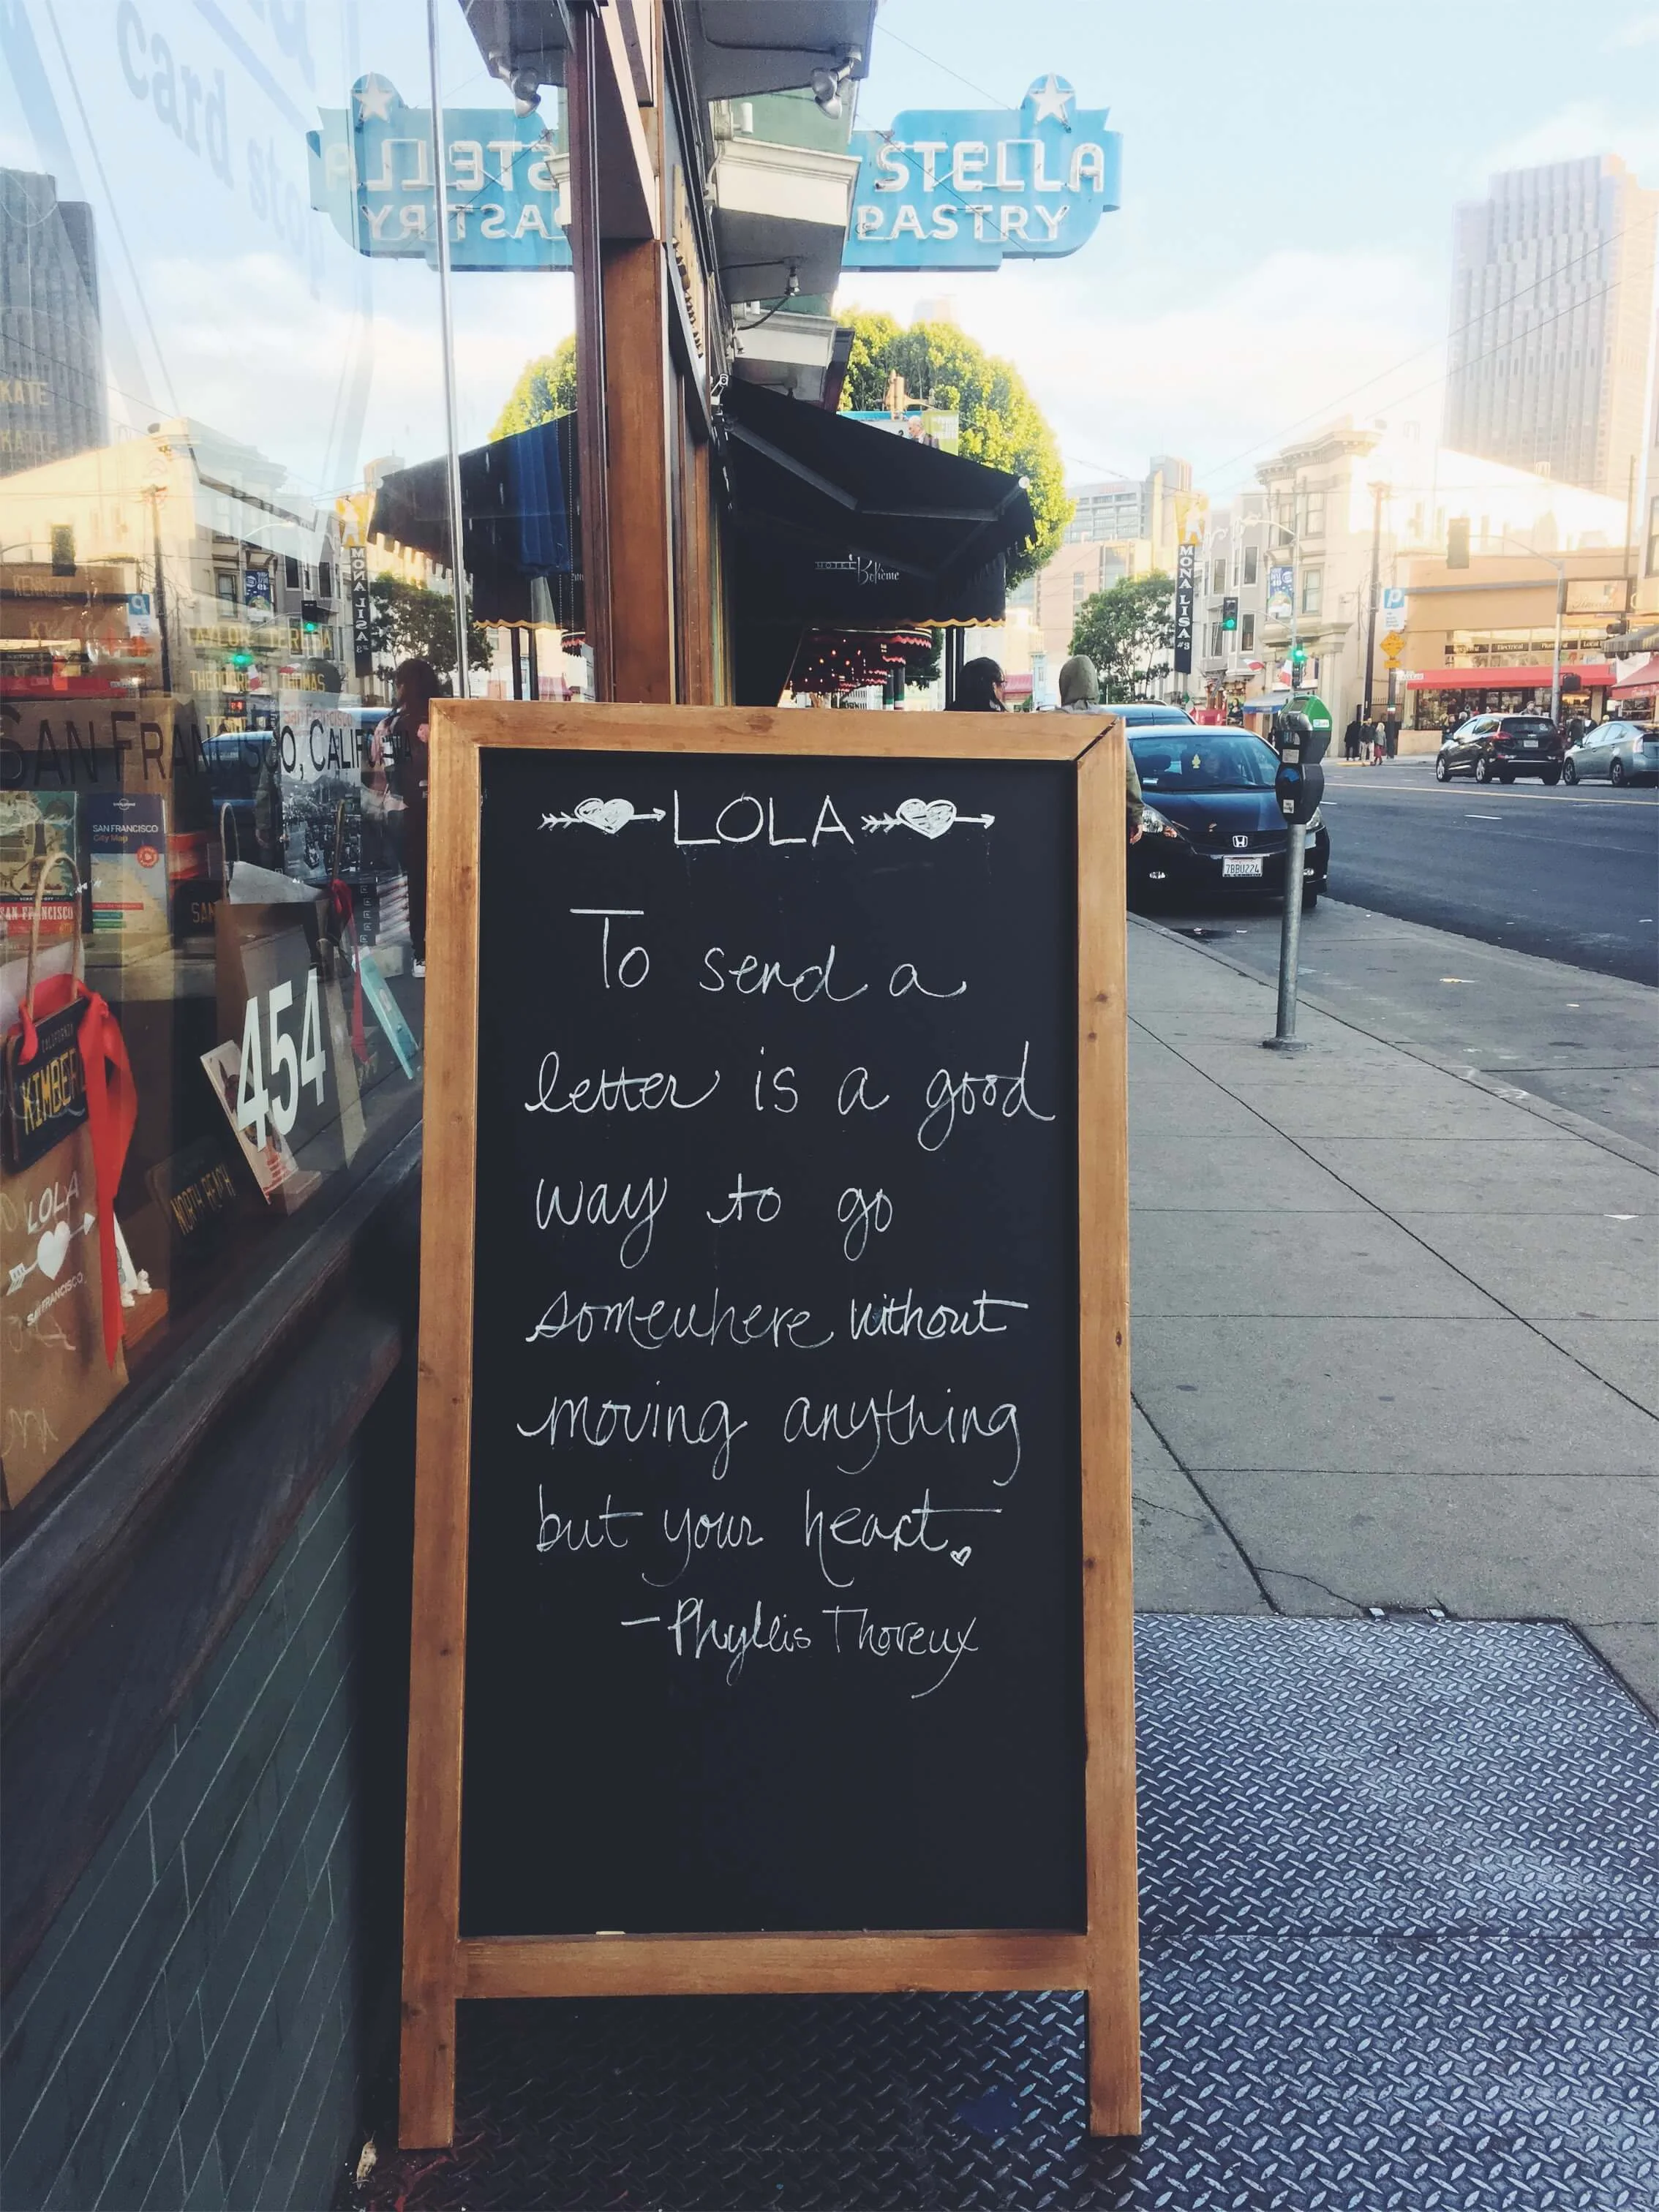 STELLA
PASTRY
STELLA
PASTRY
card
HOTEL
Bohème
MONA LISA #3
MONA LISA #3
P
P
KATE
SAN FRANCISCO, CALIFO
SAN FRANCISCO
City Map
SAN FRANCISCO
454
CALIFORNIA
KIMBER
NORTH BEACH
LOLA
SAN FRANCISCO
7BBU224
LOLA
To send a
letter is a good
way to go
somewhere without
moving anything
but your heart.
- Phyllis Thoreux